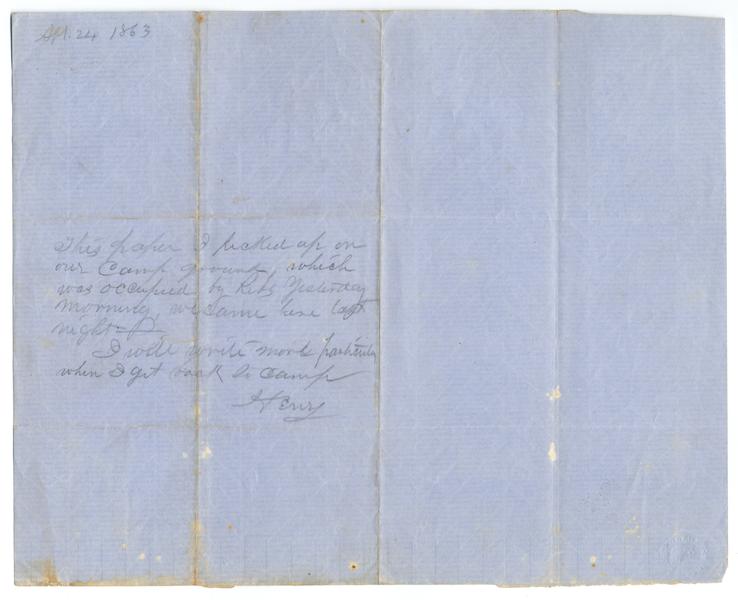 Apl. 24 1863
This paper I picked up on
our Camp ground, which
was occupied by Rebs Yesterday
morning, we came here last
night
I will write more particular
when I get back to camp
Henry